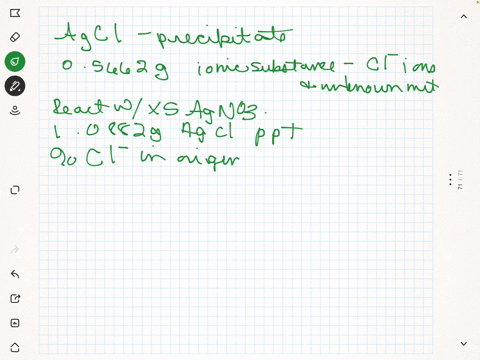 AgCl - precipitate
0.5662g ionic substance - Cl⁻ ions
& unknown met
React w/ XS AgNO3.
1.0882g AgCl ppt
% Cl⁻ in origin